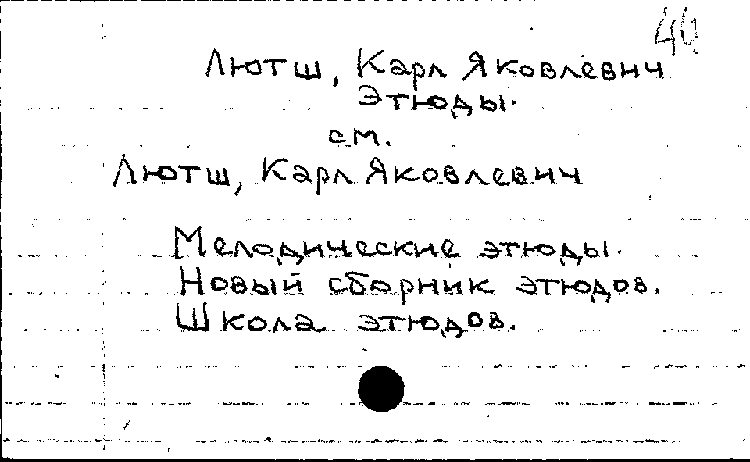 40
Лютш, Карл Яковлевич
Этюды.
см.
Лютш, Карл Яковлевич
Мелодические этюды.
Новый сборник этюдов.
Школа этюдов.